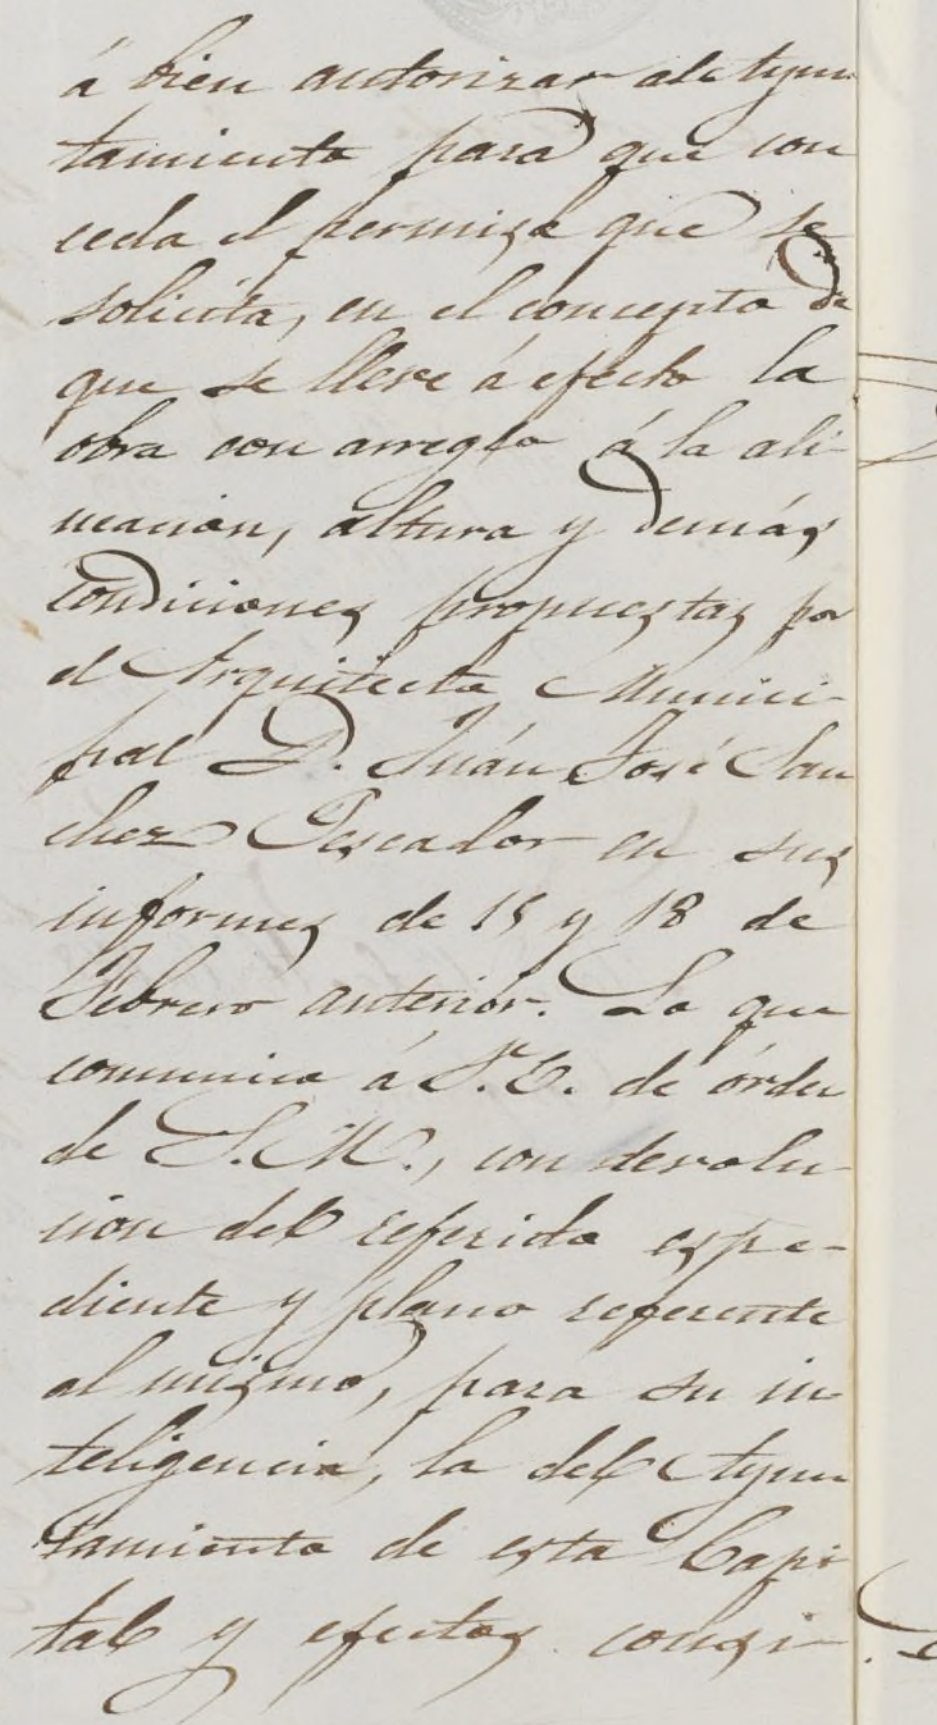 á bien autorizar al Ayun
tamiento para que con
ceda el permiso que se
solicita, en el concepto de
que se lleve á efecto la
obra con arreglo á la ali-
neacion, altura y demás
condiciones propuestas por
el Arquitecto Munici-
pal D. Juán José San
chez Pescador en sus
informes de 15 y 18 de
Febrero anterior. Lo que
comunico á V.E. de órden
de S.M., con devolu-
cion del referido espe-
diente y plano referente
al mismo, para su in-
teligencia, la del Ayun
tamiento de esta Capi
tal y efectos consi-